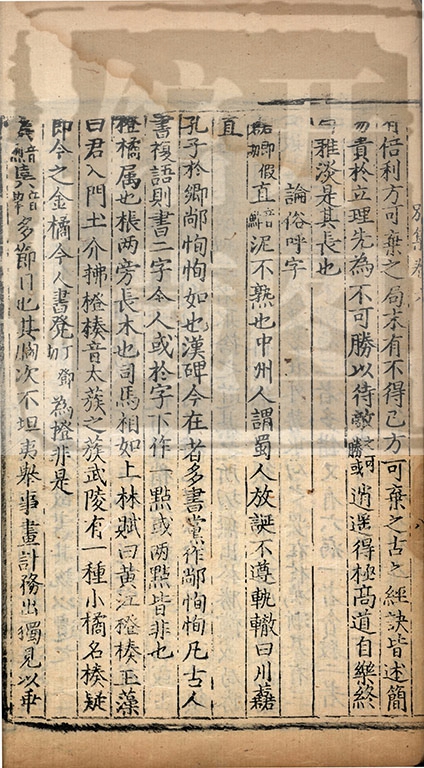 有倍利方可棄之局本有不得已方可棄之古之經訣皆述簡
易貴於立理先為不可勝以待敵之可勝或逍遥得極髙道自樂終
曰雅淡是其長也
論俗呼字
䕢郎假苴音鮓泥不熟也中州人謂蜀人放誕不遵軌轍曰川䕢
苴
孔子於鄉鄙恂恂如也漢碑今在者多書黨作鄙恂恂凡古人
書複語則書二字今人或於字下作一點或兩點皆非也
橙橘属也棖两旁長木也司馬相如上林賦曰黄江橙楱玉藻
曰君入門士介拂橙楱音太蔟之蔟武陵有一種小橘名楱疑
即今之金橘今人書凳丁鄧切為橙非是
音緒音多節目也其胸次不坦夷舉事畫計務出獨見以乖
别集卷